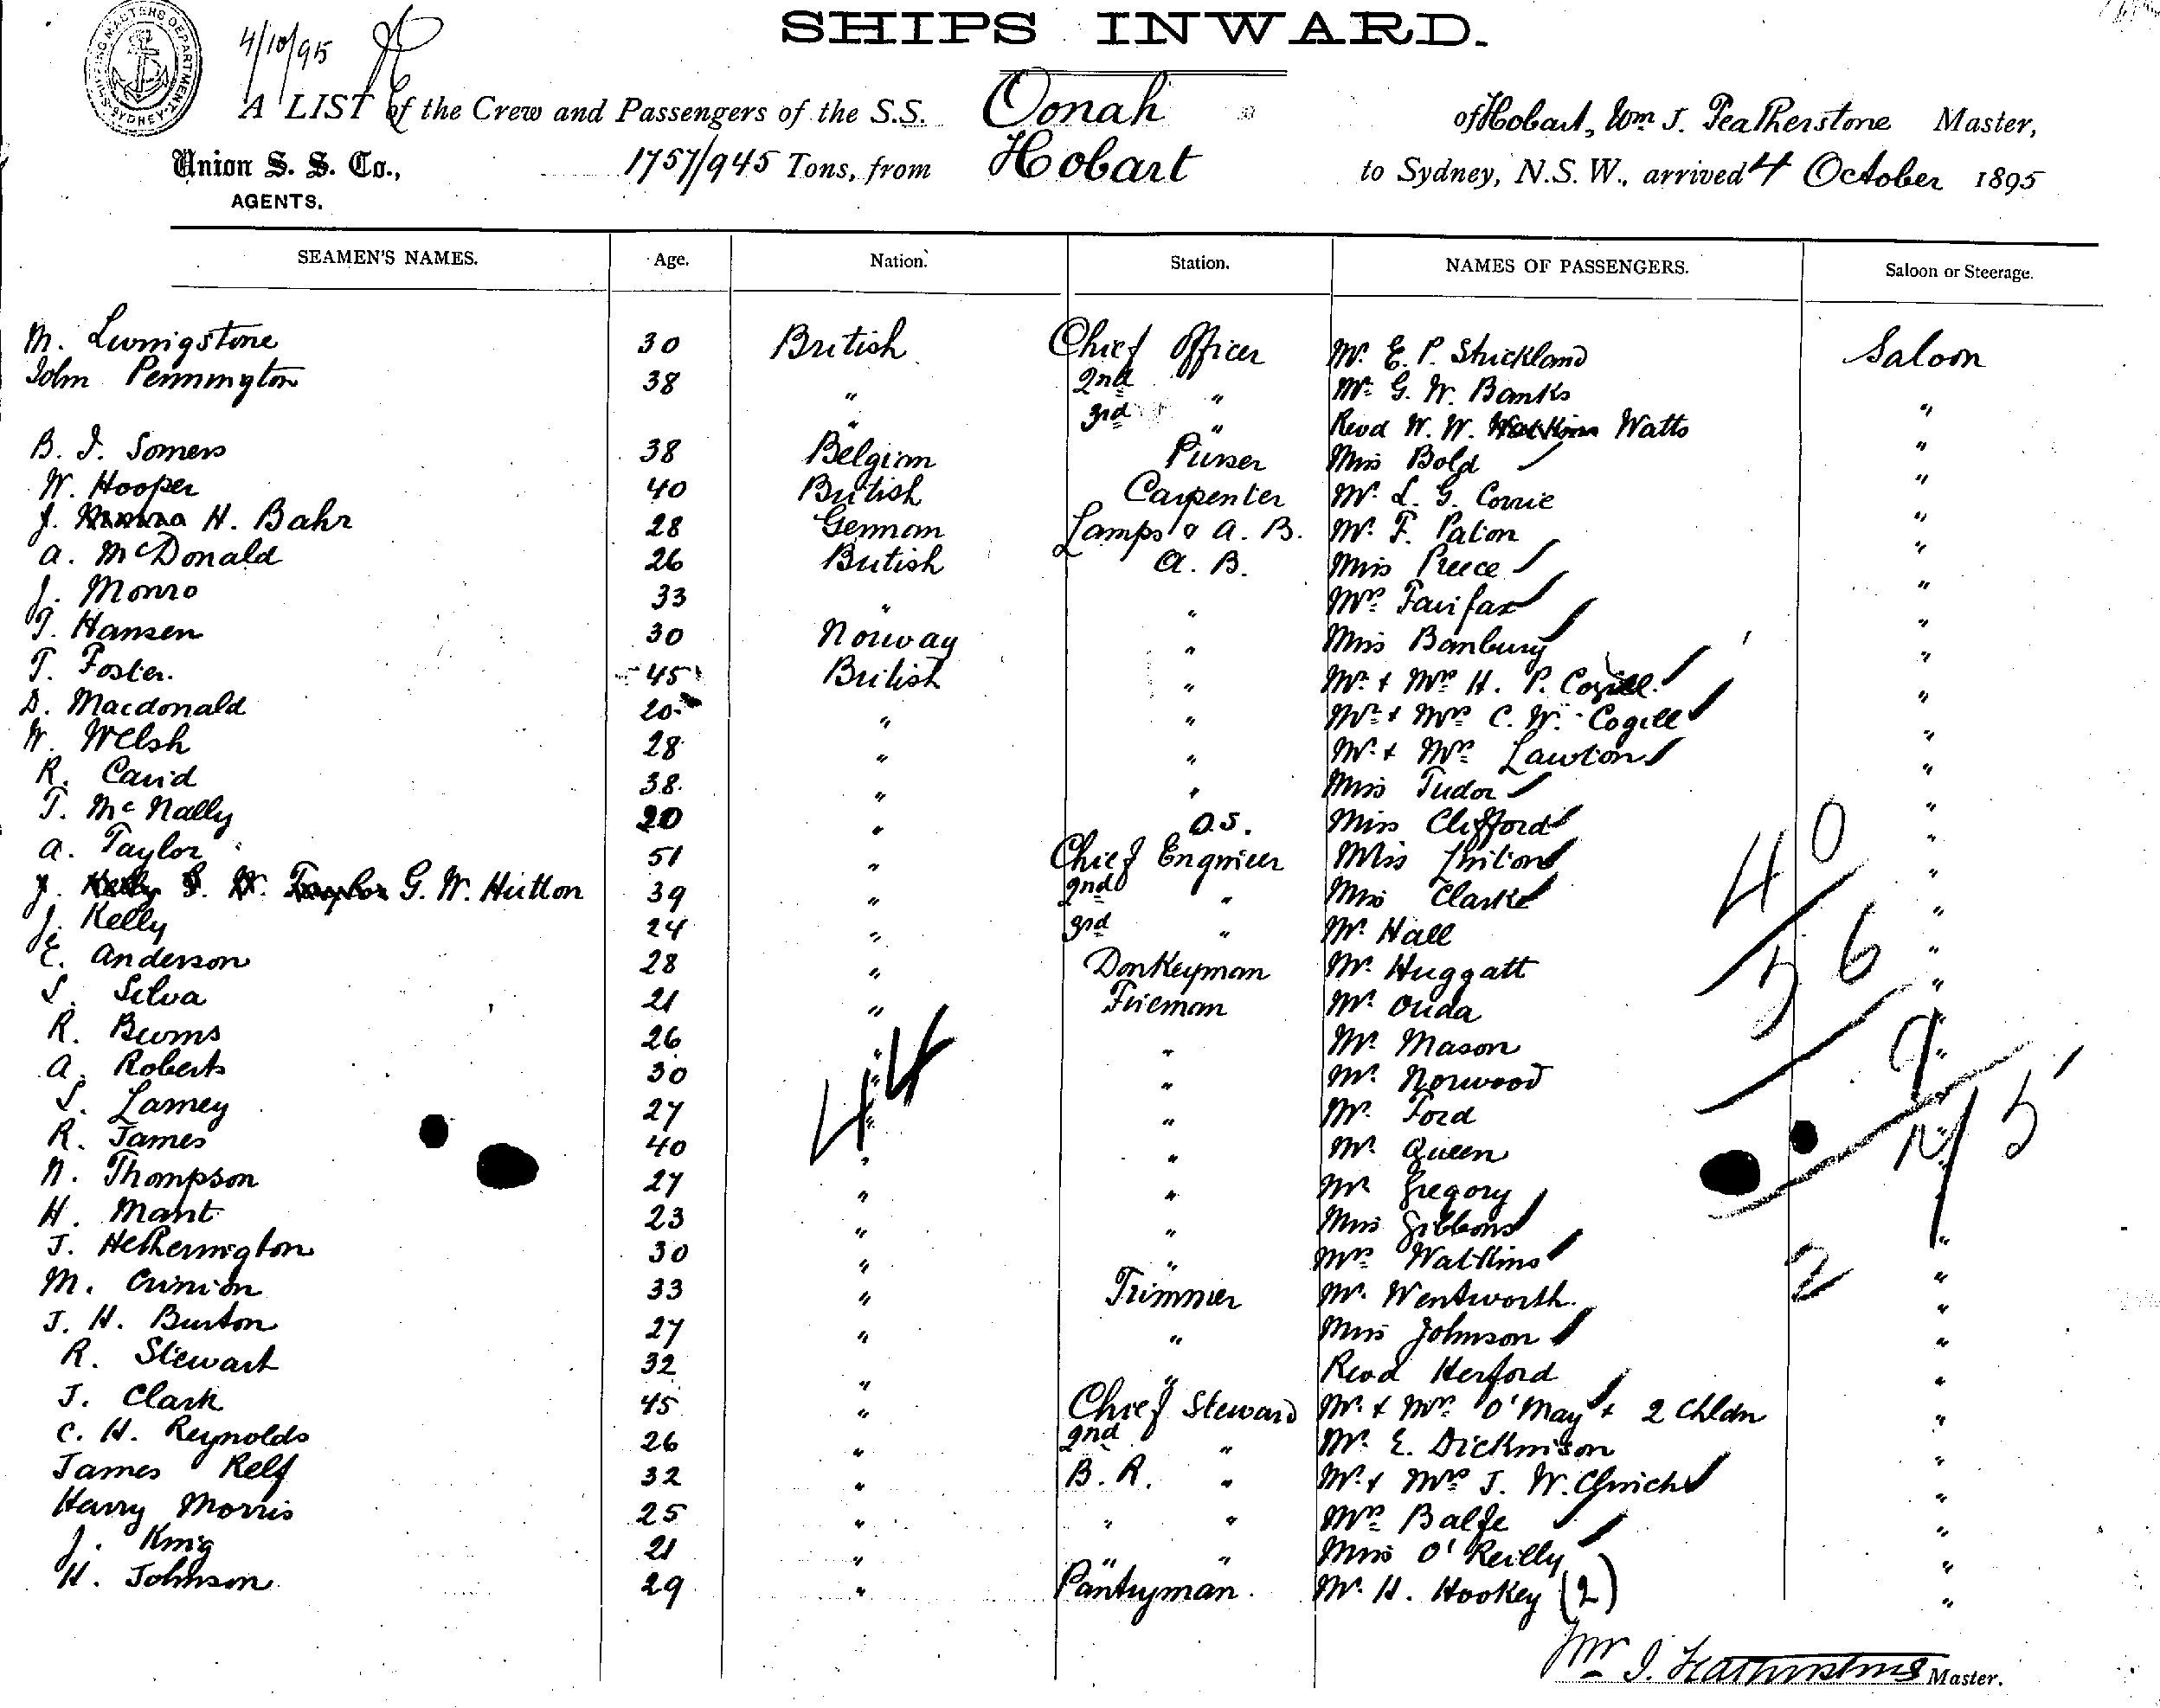 SHIPS INWARD.
SHIPPING MASTERS DEPARTMENT SYDNEY
4/10/95
A LIST of the Crew and Passengers of the S.S. Oonah of Hobart, Wm J. Featherstone Master,
Union S. S. Co., AGENTS. 1757/945 Tons, from Hobart to Sydney, N.S.W., arrived 4 October 1895
SEAMEN'S NAMES. Age. Nation. Station. NAMES OF PASSENGERS. Saloon or Steerage.
M. Livingstone 30 British Chief Officer Mr. E. P. Strickland Saloon
John Pennington 38 " 2nd " Mr. G. W. Banks "
" 3rd " Revd W. W. Watts "
B. J. Somers 38 Belgian Purser Miss Bold "
W. Hooper 40 British Carpenter Mr. L. G. Corrie "
J. H. Bahr 28 German Lamps & A. B. Mr. F. Paton "
A. McDonald 26 British A. B. Miss Preece "
J. Monro 33 " " Mrs Fairfax "
T. Hansen 30 Norway " Miss Banbury "
T. Foster. 45 British " Mr. & Mrs H. P. Cogill. "
D. Macdonald 20 " " Mr. & Mrs C. W. Cogill "
W. Welsh 28 " " Mr. & Mrs Lawton "
R. Caird 38. " " Miss Tudor "
T. McNally 20 " O.S. Miss Clifford "
A. Taylor 51 " Chief Engineer Miss "
J. Kelly G. W. Taylor G. W. Hutton 39 " 2nd " Miss Clarke "
J. Kelly 24 " 3rd " Mr. Hall "
E. Anderson 28 " Donkeyman Mr. Huggatt "
S. Silva 21 " Fireman Mr. Ouda "
R. Burns 26 " " Mr. Mason "
A. Roberts 30 " " Mr. Norwood "
S. Lamey 27 " " Mr. Ford "
R. James 40 " " Mr. Queen "
N. Thompson 27 " " Mr. Gregory "
H. Mant 23 " " Miss Gibbons "
J. Hetherington 30 " " Mrs Watkins "
M. Crinion 33 " Trimmer Mr. Wentworth. "
J. H. Burton 27 " " Miss Johnson "
R. Stewart 32 " " Revd Herford "
J. Clark 45 " Chief Steward Mr. & Mrs O'May & 2 Chldn "
C. H. Reynolds 26 " 2nd " Mr. E. Dickinson "
James Relf 32 " B. R. " Mr. & Mrs J. W. "
Harry Morris 25 " " " Mrs Balfe "
J. King 21 " " " Miss O'Reilly "
H. Johnson 29 " Pantryman. Mr. H. Hookey (2) "
44
40
56
9
15
2
Wm J. Featherstone Master.